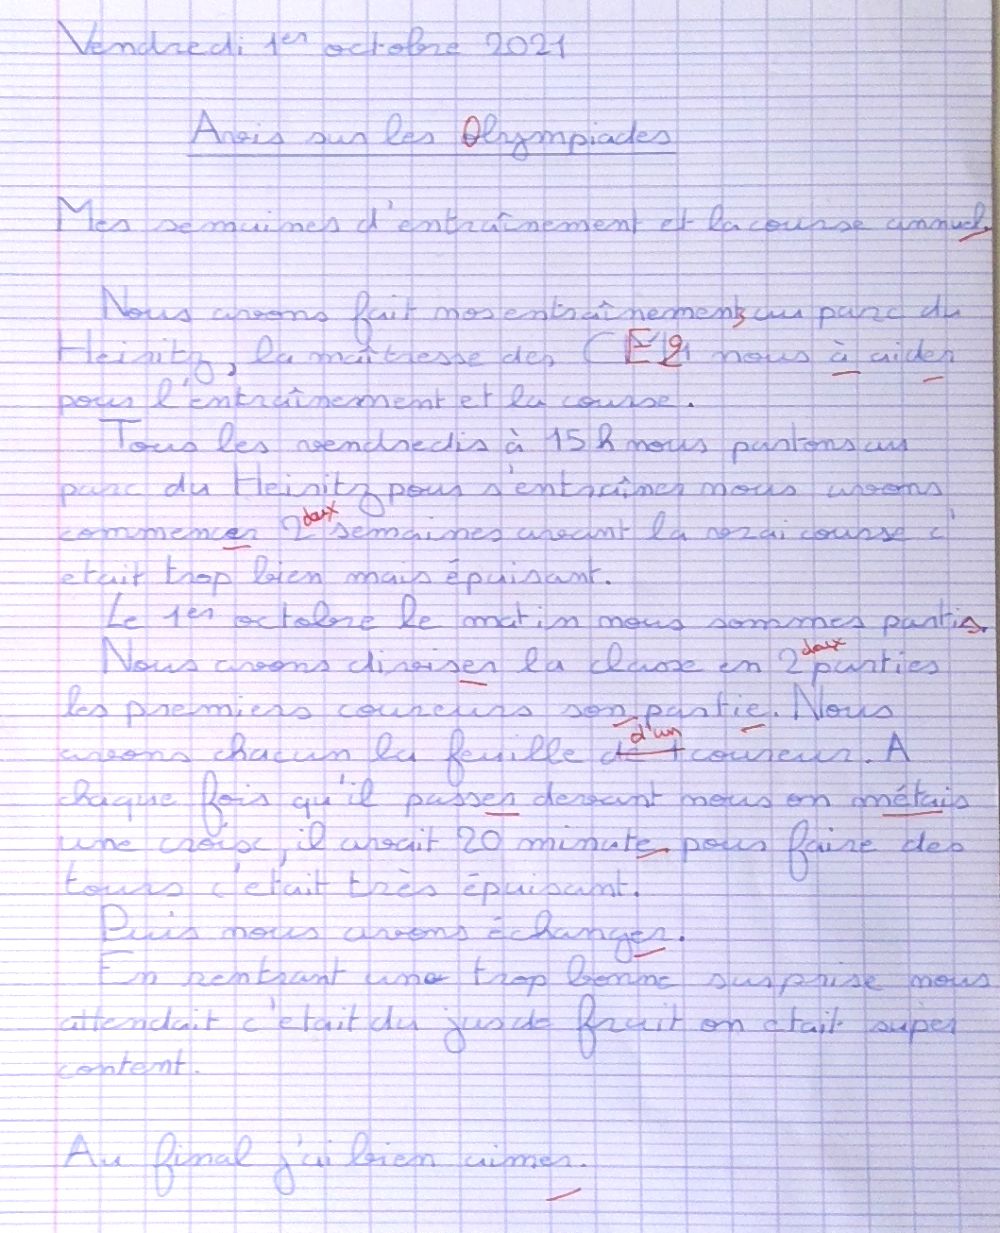 Vendredi 1er octobre 2021
Avis sur les Olympiades
Mes semaines d'entraînement et la course annuel.
Nous avons fait nos entraînements au parc du
Heinitz, la maîtresse des CE2 nous à aider
pour l'entraînement et la course.
Tous les vendredis à 15h nous partons au
parc du Heinitz pour s'entraîner nous avons
commencer 2 deux semaines avant la vrai course c'
etait trop bien mais épuisant.
Le 1er octobre le matin nous sommes partis.
Nous avons diviser la classe en 2 deux parties
les premiers coureurs son partie. Nous
avons chacun la feuille de 1 d'un coureur. A
chaque fois qu'il passer devant nous on métais
une croix, il avait 20 minute pour faire des
tours c'etait très épuisant.
Puis nous avons échanger.
En rentrant une trop bonne surprise nous
attendait c'etait du jus de fruit on etait super
content.
Au final j'ai bien aimer.